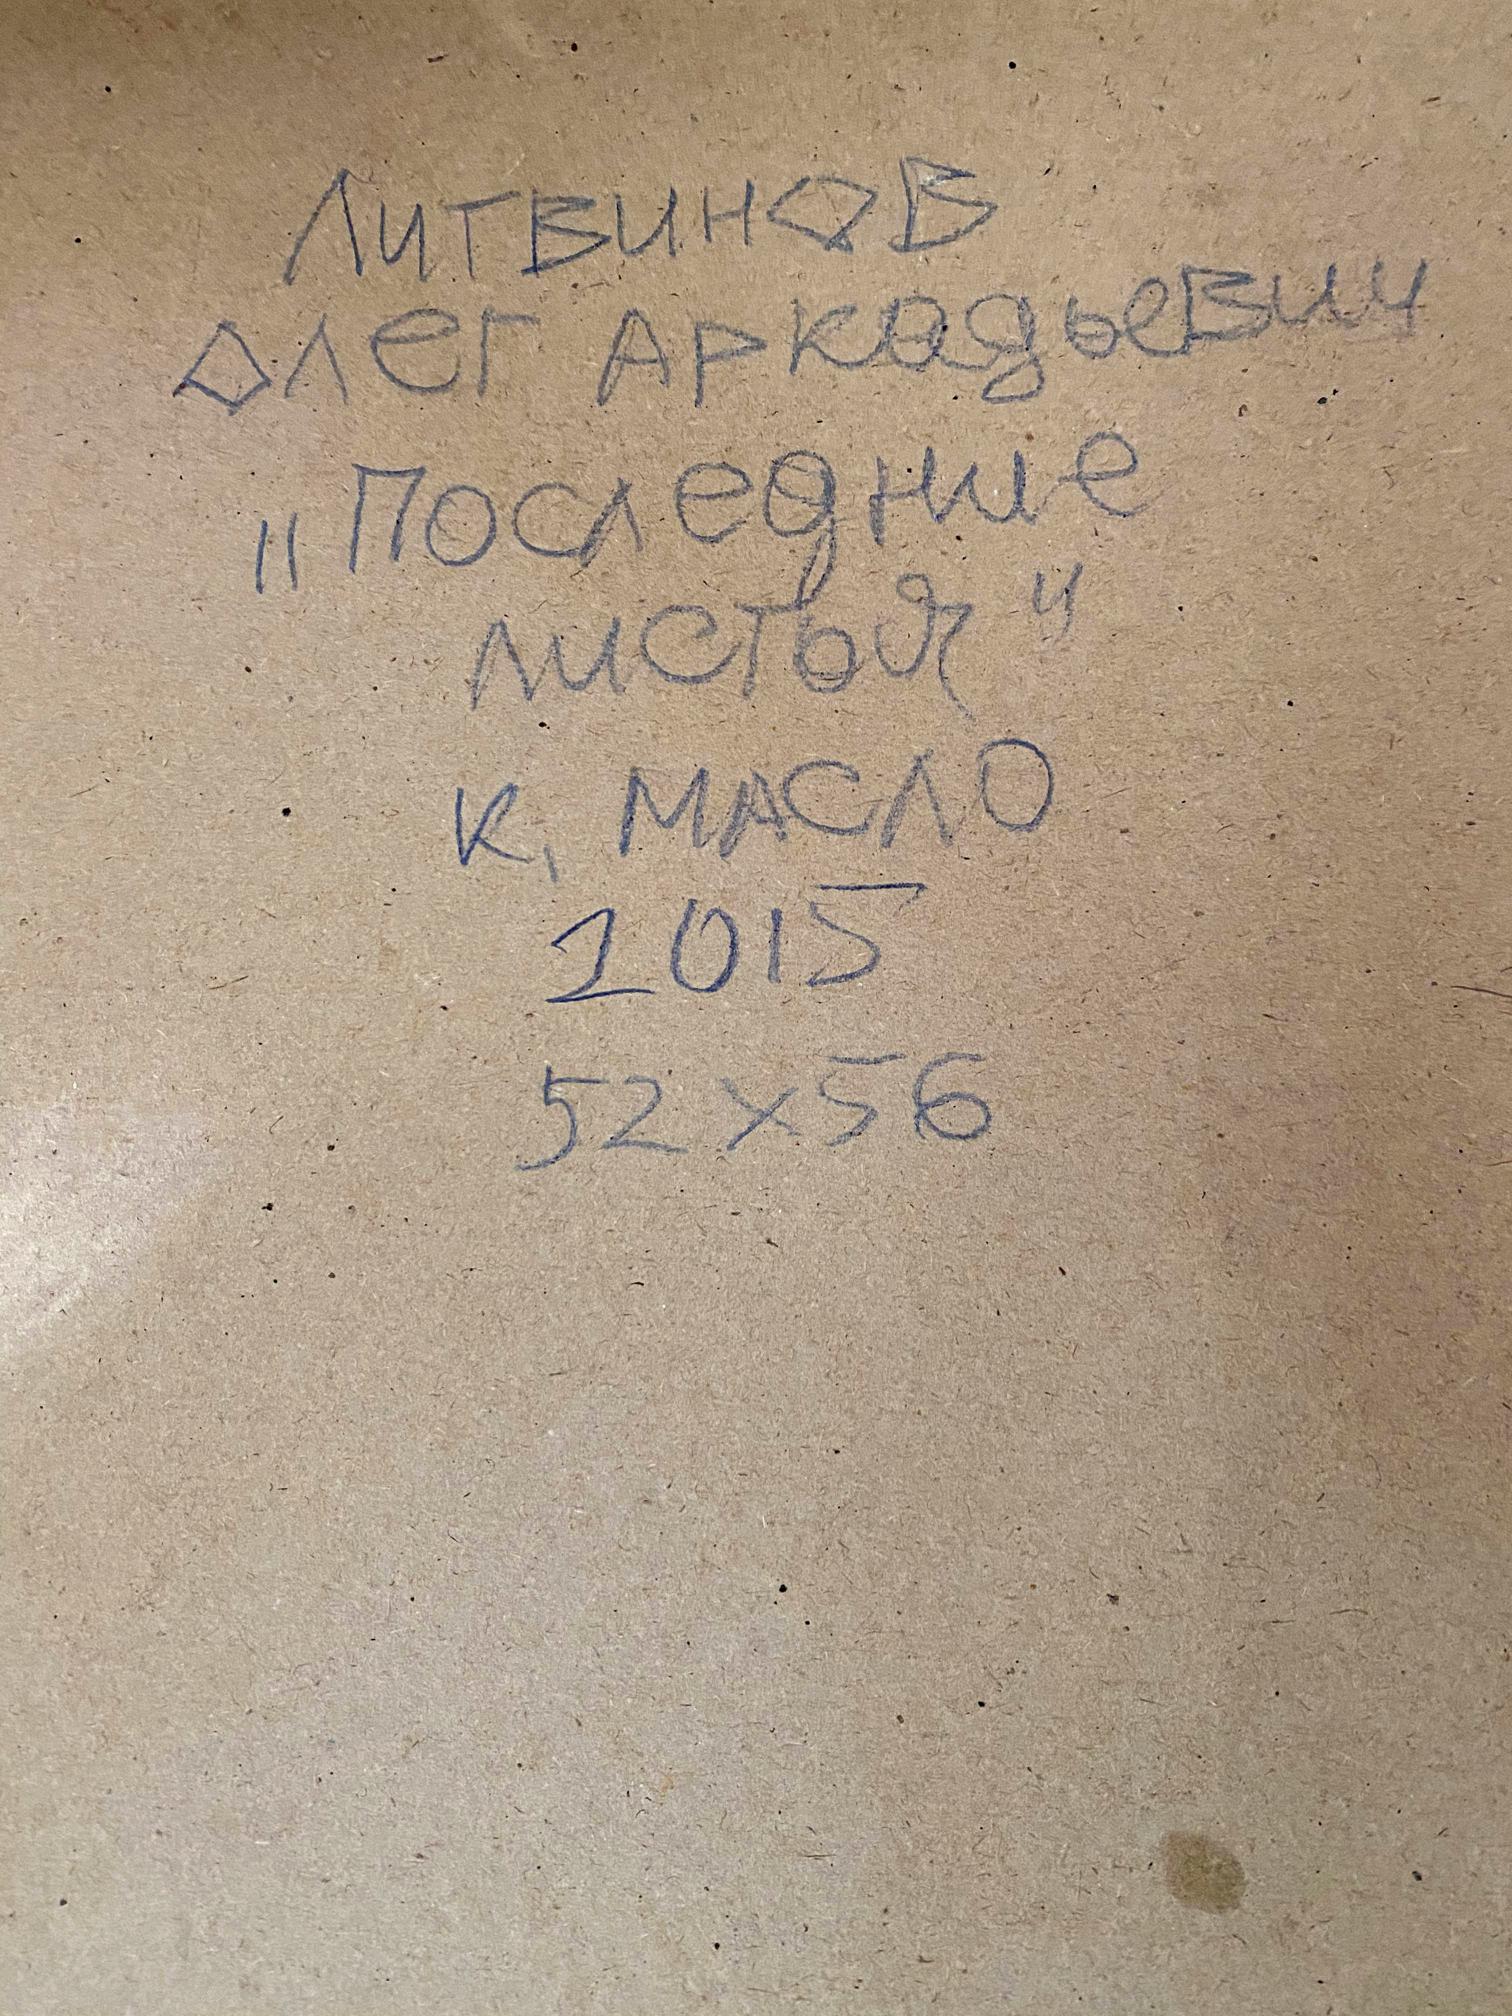 Литвинов
Олег Аркадьевич
"Последние
листья"
к, масло
2015
52x56